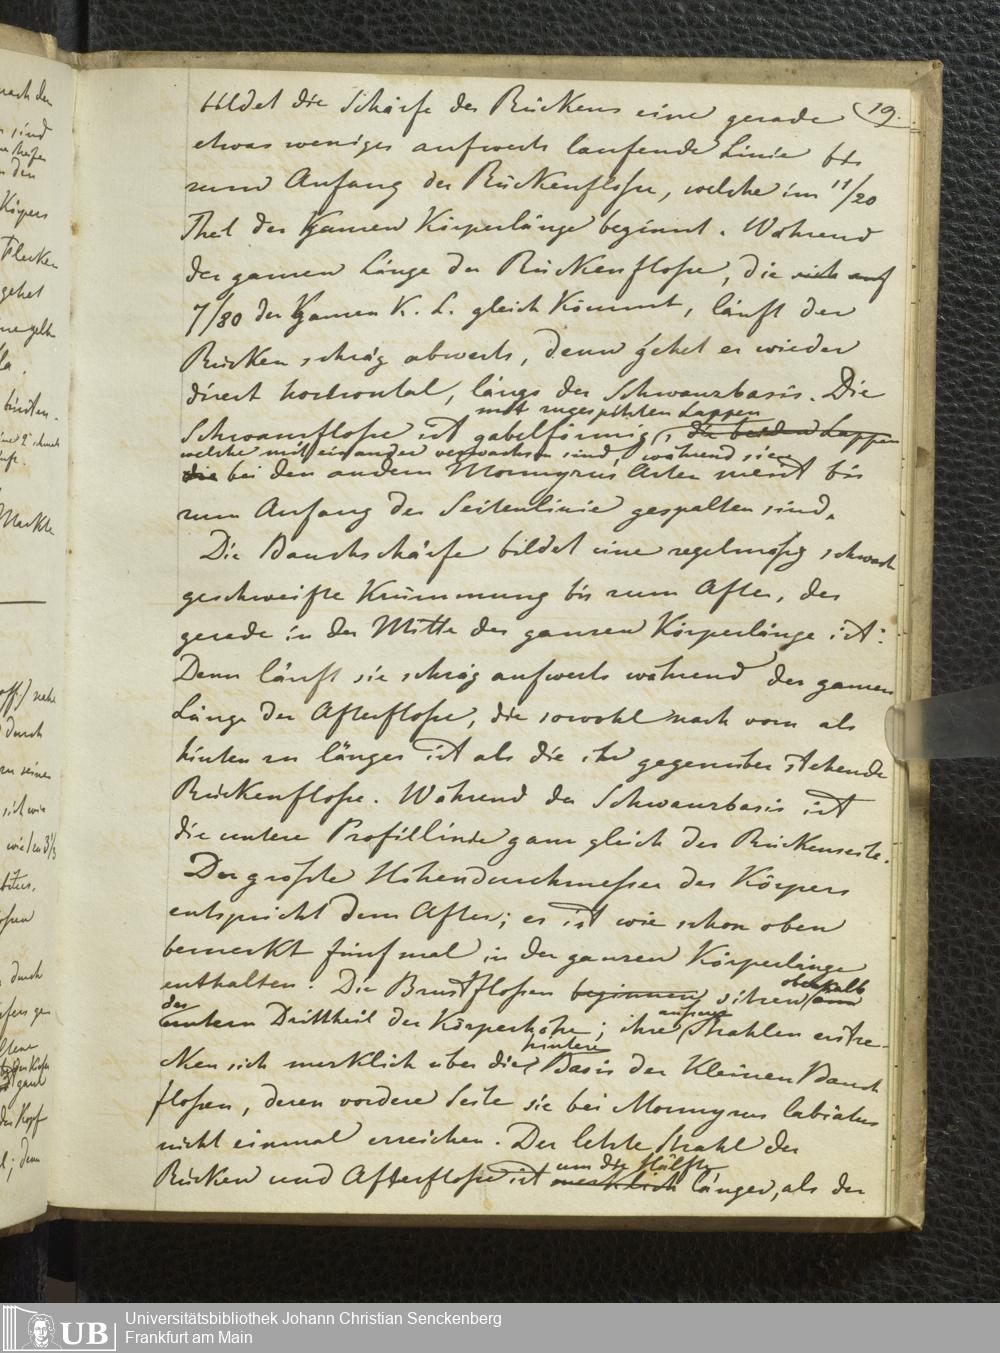 bildet die Schärfe des Rückens eine gerade 19.
etwas weniges aufwerts laufende Linie bis
zum Anfang der Rückenflosse, welche im 11/20
Theil der ganzen Körperlänge beginnt. Während
der ganzen Länge der Rückenflosse, die sich auf
7/80 der ganzen K. L. gleich kömmt, läuft der
Rücken schräg abwerts, denn gehet er wieder
direct horizontal, längs der Schwanzbasis. Die
mit zugespitzten Lappen
Schwanzflosse ist gabelförmig, die beiden Lappen
welche mit einander verwachsen sind, während sie
die bei den andern Mormyrus Arten meist bis
zum Anfang der Seitenlinie gespalten sind.
Die Bauchschärfe bildet eine regelmäsig schwach
geschweifte Krümmung bis zum After, der
gerade in der Mitte der ganzen Körperlänge ist:
Denn läuft sie schräg aufwerts während der ganzen
Länge der Afterflosse, die sowohl nach vorn als
hinten zu länger ist als die ihr gegenuber stehende
Rückenflosse. Während der Schwanzbasis ist
die untere Profillinie ganz gleich der Rückenseite.
Der groste Höhendurchmesser des Körpers
entspricht dem After; er ist wie schon oben
bemerkt fünfmal in der ganzen Körperlänge
enthalten. Die Brustflossen beginnen sitzen oberhalb am
des
untern Drittheil der Körperhöhe; ihre Strahlen erstre-
hintere
cken sich merklich uber die Basis der kleinen Bauch
flossen, deren vordere Seite sie bei Mormyrus labiatus
nicht einmal erreichen. Der letzte Strahl der
um die Hälfte
Rücken und Afterflosse ist merklich länger, als der
Universitätsbibliothek Johann Christian Senckenberg
Frankfurt am Main
UB